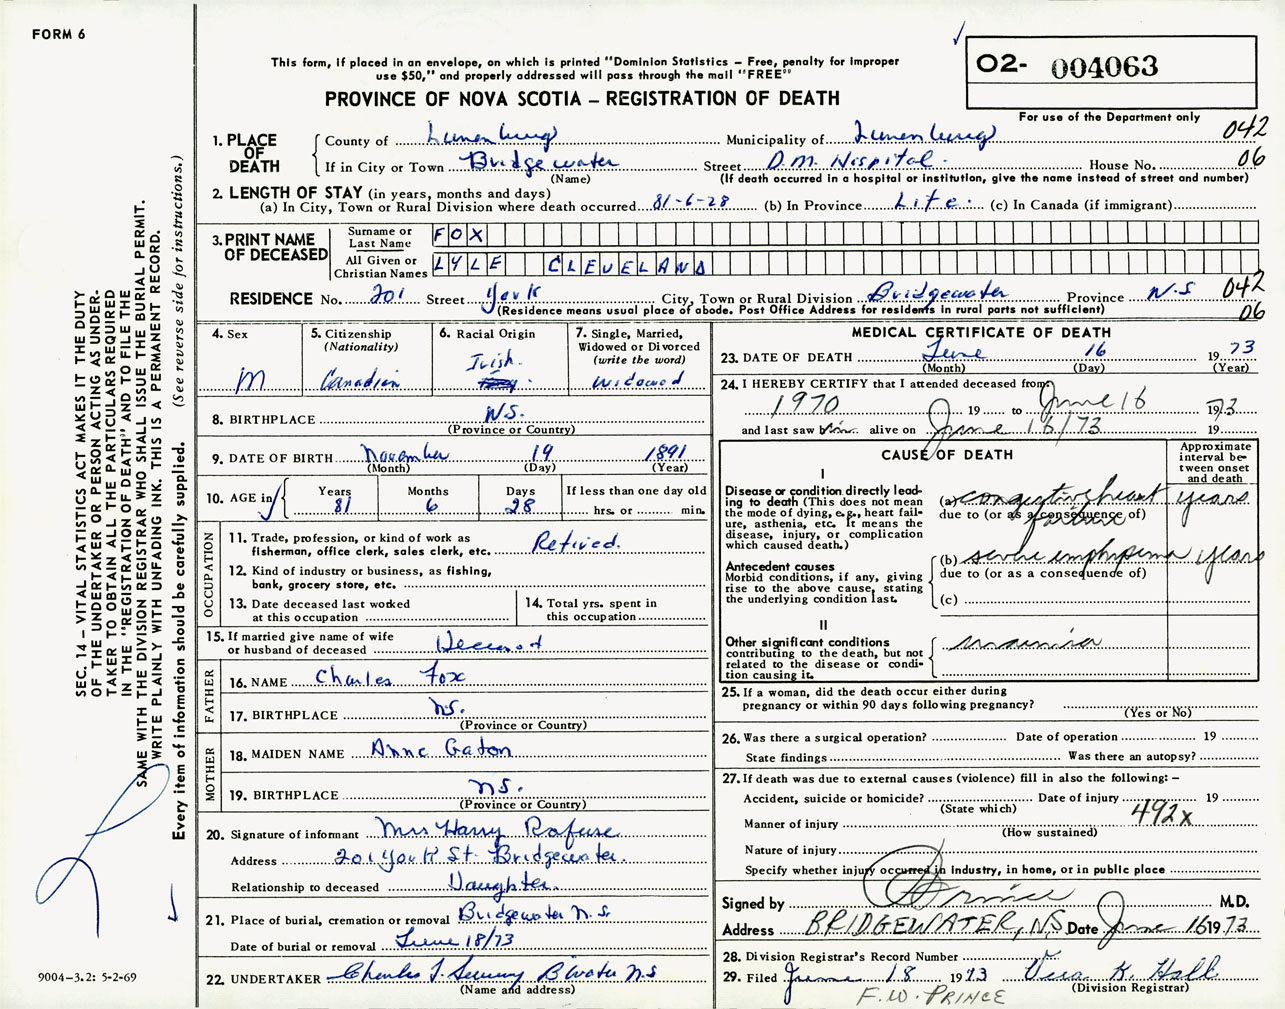 FORM 6
This form, if placed in an envelope, on which is printed "Dominion Statistics – Free, penalty for improper
use $50," and properly addressed will pass through the mail "FREE"
PROVINCE OF NOVA SCOTIA – REGISTRATION OF DEATH
O2- 004063
For use of the Department only
042
06
1. PLACE OF DEATH
County of Lunenburg Municipality of Lunenburg
If in City or Town Bridgewater Street D.M. Hospital. House No.
(Name) (If death occurred in a hospital or institution, give the name instead of street and number)
2. LENGTH OF STAY (in years, months and days)
(a) In City, Town or Rural Division where death occurred 81-6-28 (b) In Province Life. (c) In Canada (if immigrant)
3. PRINT NAME OF DECEASED
Surname or Last Name FOX
All Given or Christian Names LYLE CLEVELAND
RESIDENCE No. 201 Street York City, Town or Rural Division Bridgewater Province N.S 042
(Residence means usual place of abode. Post Office Address for residents in rural parts not sufficient) 06
4. Sex
M
5. Citizenship
(Nationality)
Canadian
6. Racial Origin
Irish.
7. Single, Married,
Widowed or Divorced
(write the word)
Widowed
8. BIRTHPLACE N.S.
(Province or Country)
9. DATE OF BIRTH November 19 1891
(Month) (Day) (Year)
10. AGE in
Years Months Days If less than one day old
81 6 28 hrs. or min.
OCCUPATION
11. Trade, profession, or kind of work as
fisherman, office clerk, sales clerk, etc. Retired.
12. Kind of industry or business, as fishing,
bank, grocery store, etc.
13. Date deceased last worked
at this occupation
14. Total yrs. spent in
this occupation
15. If married give name of wife
or husband of deceased
FATHER
16. NAME Charles Fox
17. BIRTHPLACE N.S.
(Province or Country)
MOTHER
18. MAIDEN NAME Anne Gaton
19. BIRTHPLACE N.S.
(Province or Country)
20. Signature of informant Mrs Harry Rafuse
Address 201 York St. Bridgewater.
Relationship to deceased Daughter.
21. Place of burial, cremation or removal Bridgewater N.S.
Date of burial or removal June 18/73
22. UNDERTAKER Charles B'water N.S
(Name and address)
MEDICAL CERTIFICATE OF DEATH
23. DATE OF DEATH June 16 1973
(Month) (Day) (Year)
24. I HEREBY CERTIFY that I attended deceased from:
1970 19 to June 16 1973
and last saw him alive on June 16/73 19
CAUSE OF DEATH
Approximate
interval be-
tween onset
and death
I
Disease or condition directly lead-
ing to death (This does not mean
the mode of dying, e.g., heart fail-
ure, asthenia, etc. It means the
disease, injury, or complication
which caused death.)
(a) congestive heart failure years
due to (or as a consequence of)
Antecedent causes
Morbid conditions, if any, giving
rise to the above cause, stating
the underlying condition last.
(b) severe emphysema years
due to (or as a consequence of)
(c)
II
Other significant conditions
contributing to the death, but not
related to the disease or condi-
tion causing it.
25. If a woman, did the death occur either during
pregnancy or within 90 days following pregnancy?
(Yes or No)
26. Was there a surgical operation? Date of operation 19
State findings Was there an autopsy?
27. If death was due to external causes (violence) fill in also the following: –
Accident, suicide or homicide? Date of injury 19
(State which)
492x
Manner of injury
(How sustained)
Nature of injury
Specify whether injury occurred in Industry, in home, or in public place
Signed by Prince M.D.
Address BRIDGEWATER, N.S. Date June 16 1973
28. Division Registrar's Record Number
29. Filed June 18 1973 Vera K. Hall
(Division Registrar)
F.W. PRINCE
SEC. 14 – VITAL STATISTICS ACT MAKES IT THE DUTY
OF THE UNDERTAKER OR PERSON ACTING AS UNDER-
TAKER TO OBTAIN ALL THE PARTICULARS REQUIRED
IN THE "REGISTRATION OF DEATH" AND TO FILE THE
SAME WITH THE DIVISION REGISTRAR WHO SHALL ISSUE THE BURIAL PERMIT.
WRITE PLAINLY WITH UNFADING INK. THIS IS A PERMANENT RECORD.
Every item of information should be carefully supplied. (See reverse side for instructions.)
9004-3.2: 5-2-69